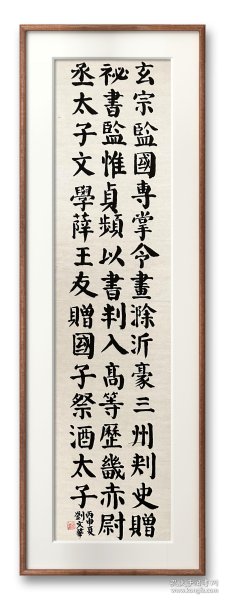 玄宗監國專掌令畫滁沂豪三州刾史贈
祕書監惟貞頻以書判入高等歷畿赤尉
丞太子文學薛王友贈國子祭酒太子
丙申夏
劉文華